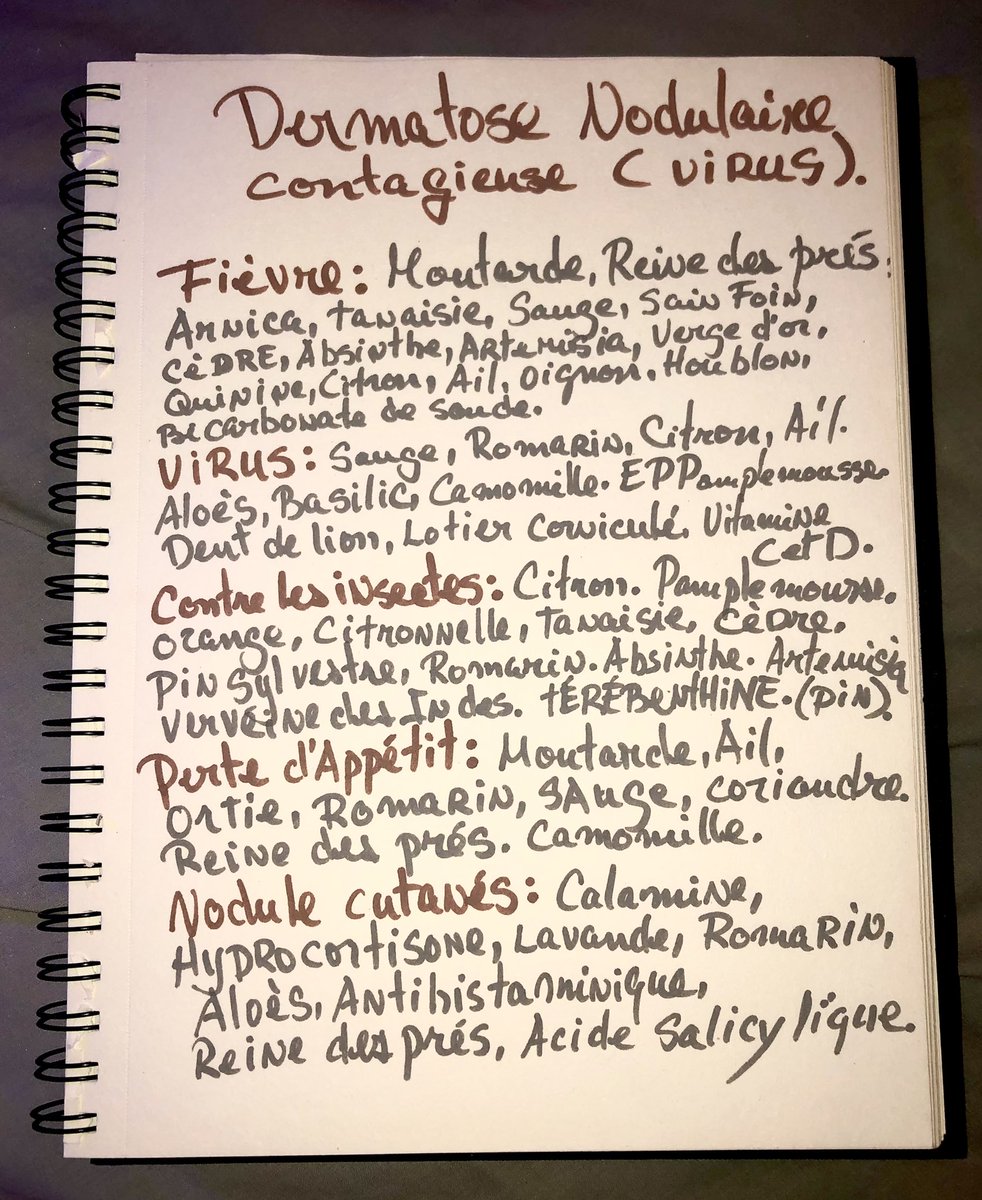 Dermatose Nodulaire
contagieuse (ViRUS).
Fièvre: Moutarde, Reine des prés.
Arnica, tanaisie, Sauge, Sain Foin,
CèDRE, Absinthe, ARtemisia, Verge d'or,
Quinine, Citron, Ail, Oignon. Houblon,
Bicarbonate de soude.
ViRUS: Sauge, Romarin, Citron, Ail.
Aloès, Basilic, Camomille. EPPamplemousse
Dent de lion, Lotier corniculé. Vitamine
C et D.
Contre les insectes: Citron. Pamplemousse.
orange, Citronnelle, tanaisie, Cèdre,
Pin Sylvestre, Romarin. Absinthe. Artemisia
Verveine des Indes. tÉRÉBENtHiNE. (PiN).
Perte d'Appétit: Moutarde, Ail,
Ortie, RomaRiN, SAuge, coriandre.
Reine des prés. Camomille.
Nodule cutanés: Calamine,
HyDROCORtisone, Lavande, RomaRiN,
Aloès, Antihistamminique,
Reine des prés, Acide Salicylique.